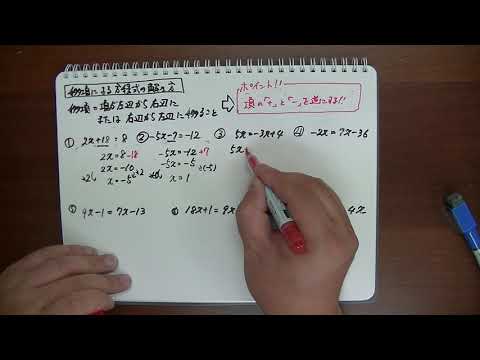 移項による方程式の解き方
移項=項を左辺から右辺に
または右辺から左辺に移すこと
ポイント!!
項の「+」と「-」を逆にする!!
① 2x+18=8
2x=8-18
2x=-10
x=-5
÷2
② -5x-7=-12
-5x=-12+7
-5x=-5
÷(-5)
x=1
③ 5x=-3x+4
5x
④ -2x=7x-36
⑤ 4x-1=7x-13
18x+1=9x
4x